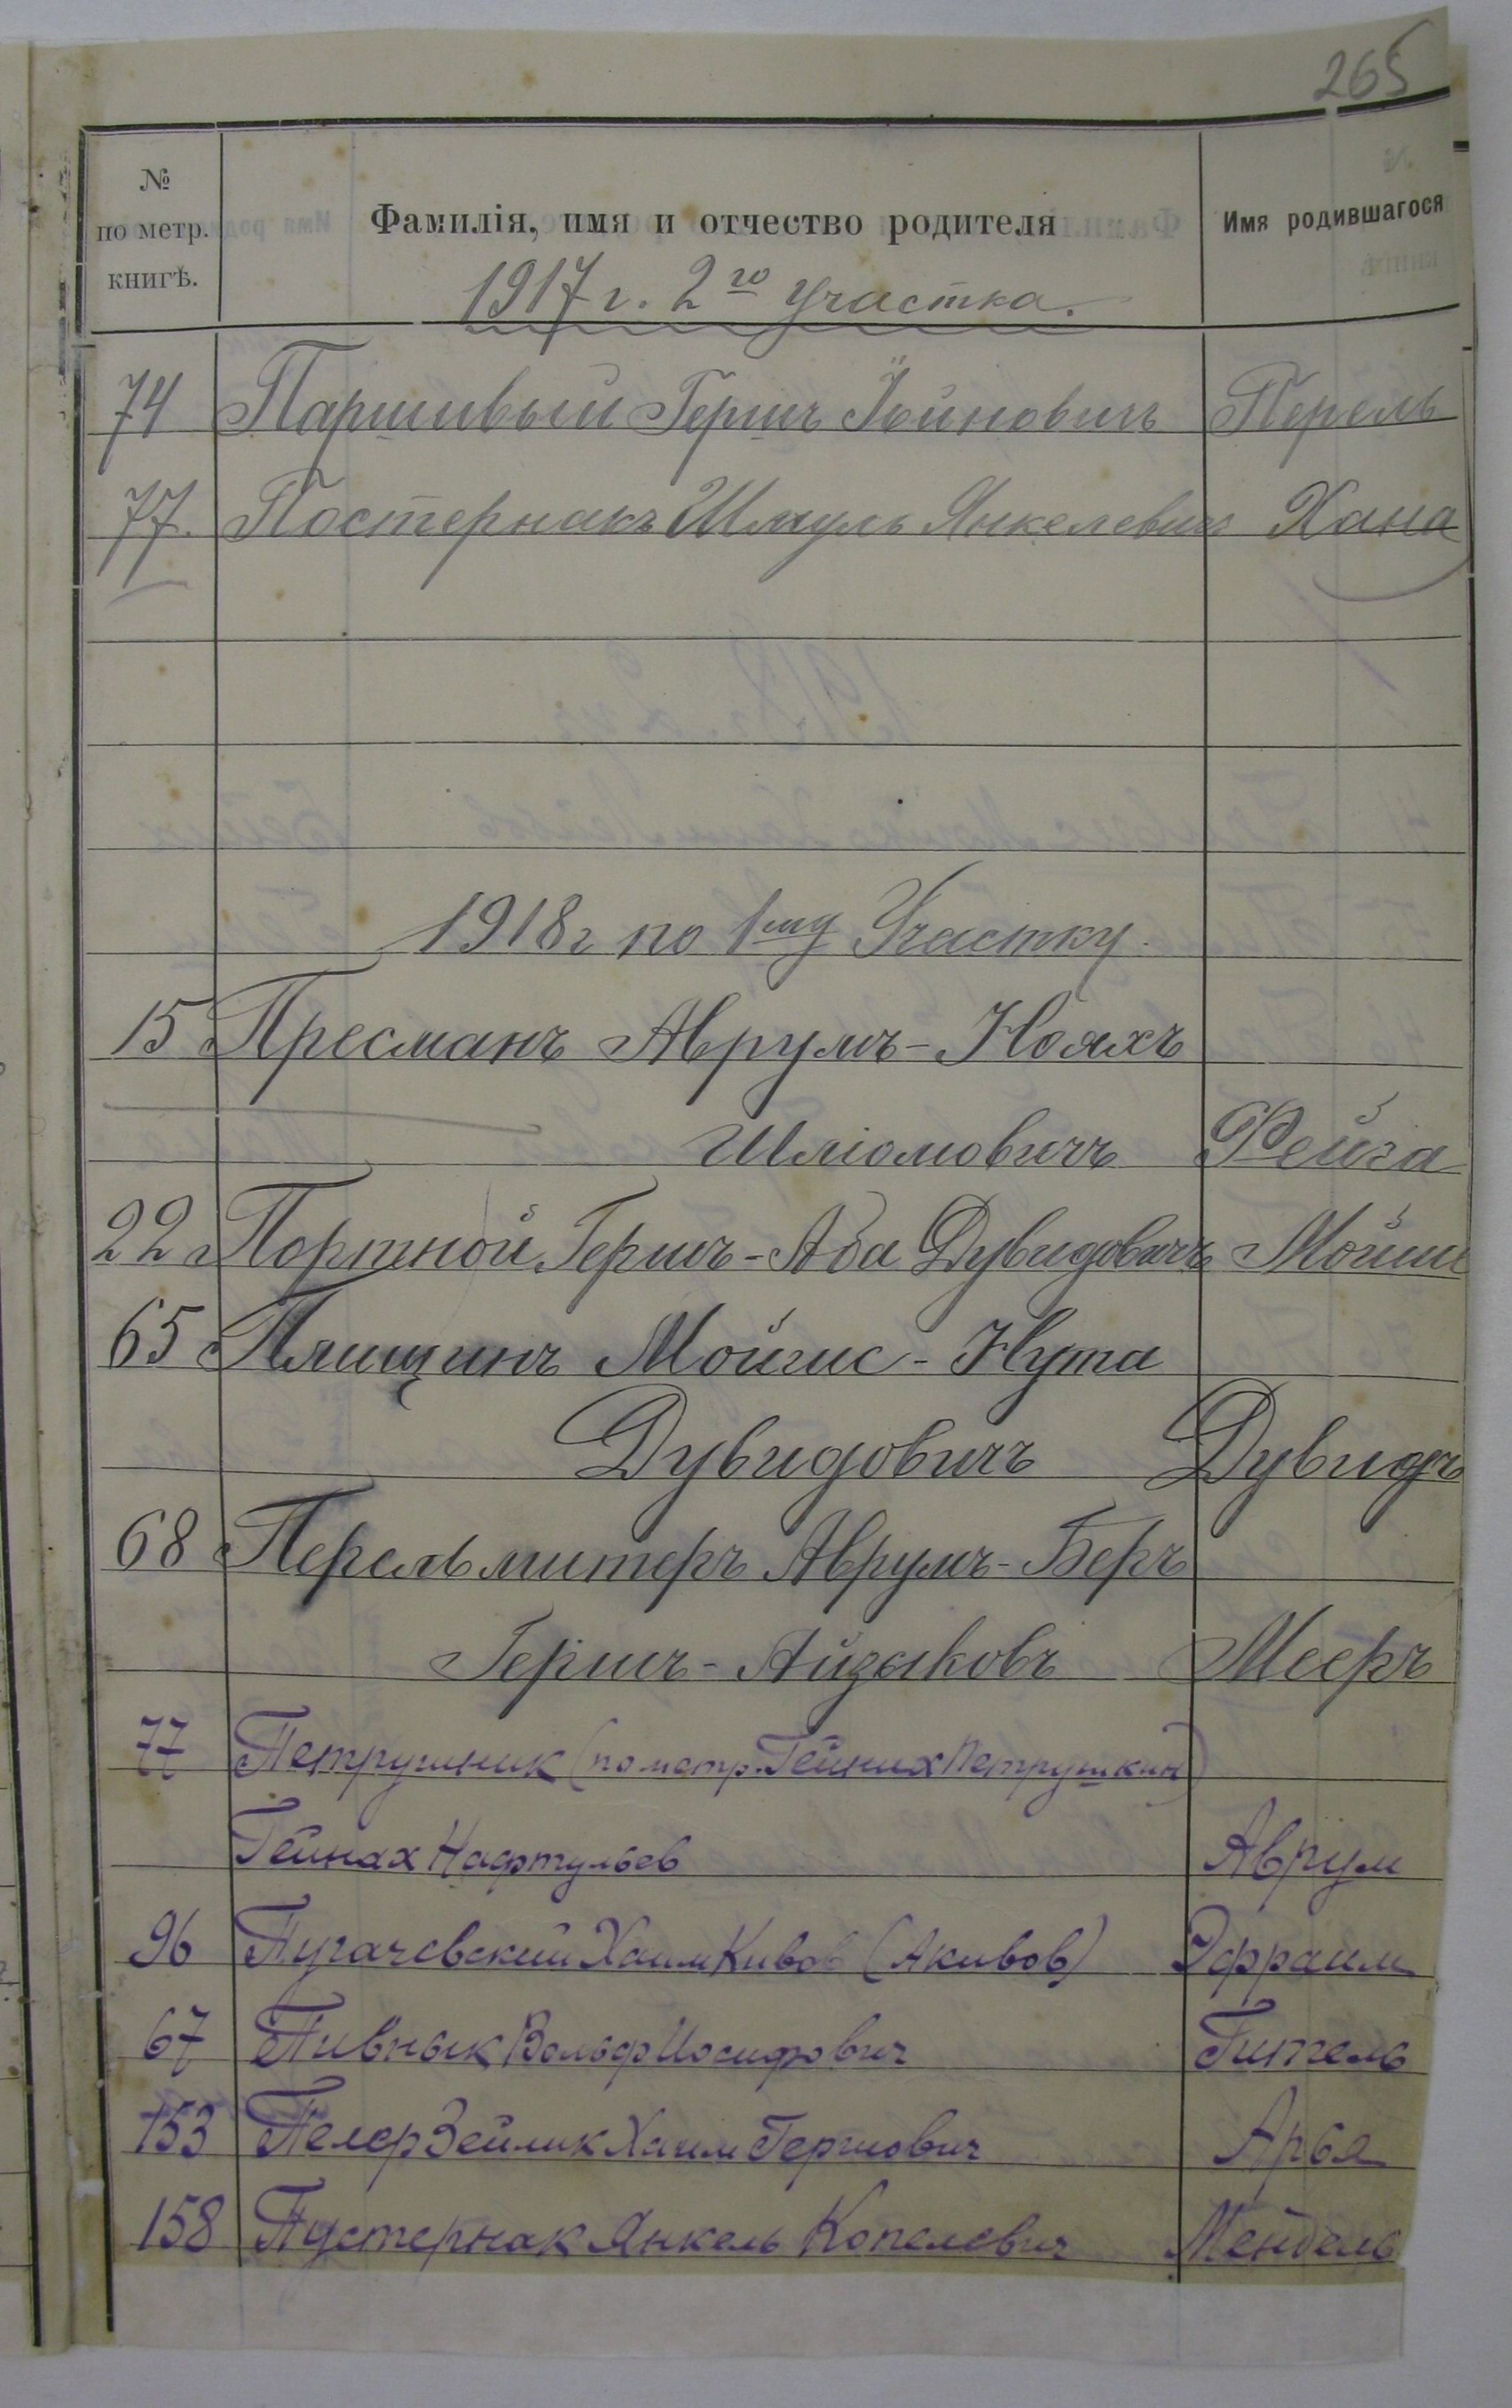 265
№ по метр. книгѣ. Фамилія, имя и отчество родителя Имя родившагося
1917 г. 2го участка.
74 Паршивый Гершъ Іойновичъ Перель
77. Постернакъ Шмуль Янкелевичъ Хана
1918 г по 1му Участку.
15 Пресманъ Аврумъ-Нояхъ
Шліомовичъ Фейга
22 Портной Гершъ-Аба Дувидовичъ Мойше
65 Плищинъ Мойше-Нута
Дувидовичъ Дувидъ
68 Перельмитеръ Аврумъ-Беръ
Гершъ-Айзыковъ Мееръ
77 Петрушник (по метр. Гейних Петрушкин)
Гейнах Нафтульев Аврум
96 Пугачевский Хаим Кивов (Акивов) Эфраим
67 Пивнык Вольф Иосифович Гитель
153 Пелер Зейлик Хаим Гершович Арья
158 Пустернак Янкель Копелевич Мендель